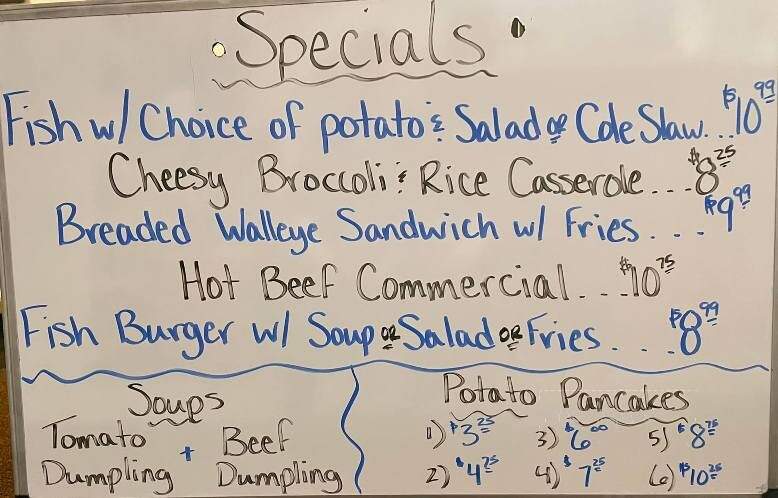 Specials
Fish w/ Choice of potato & Salad or Cole Slaw...$10.99
Cheesy Broccoli & Rice Casserole...$8.25
Breaded Walleye Sandwich w/ Fries....$9.99
Hot Beef Commercial...$10.75
Fish Burger w/ Soup or Salad or Fries....$8.99
Soups
Tomato Dumpling + Beef Dumpling
Potato Pancakes
1) $3.25 3) $6.00 5) $8.75
2) $4.75 4) $7.25 6) $10.25